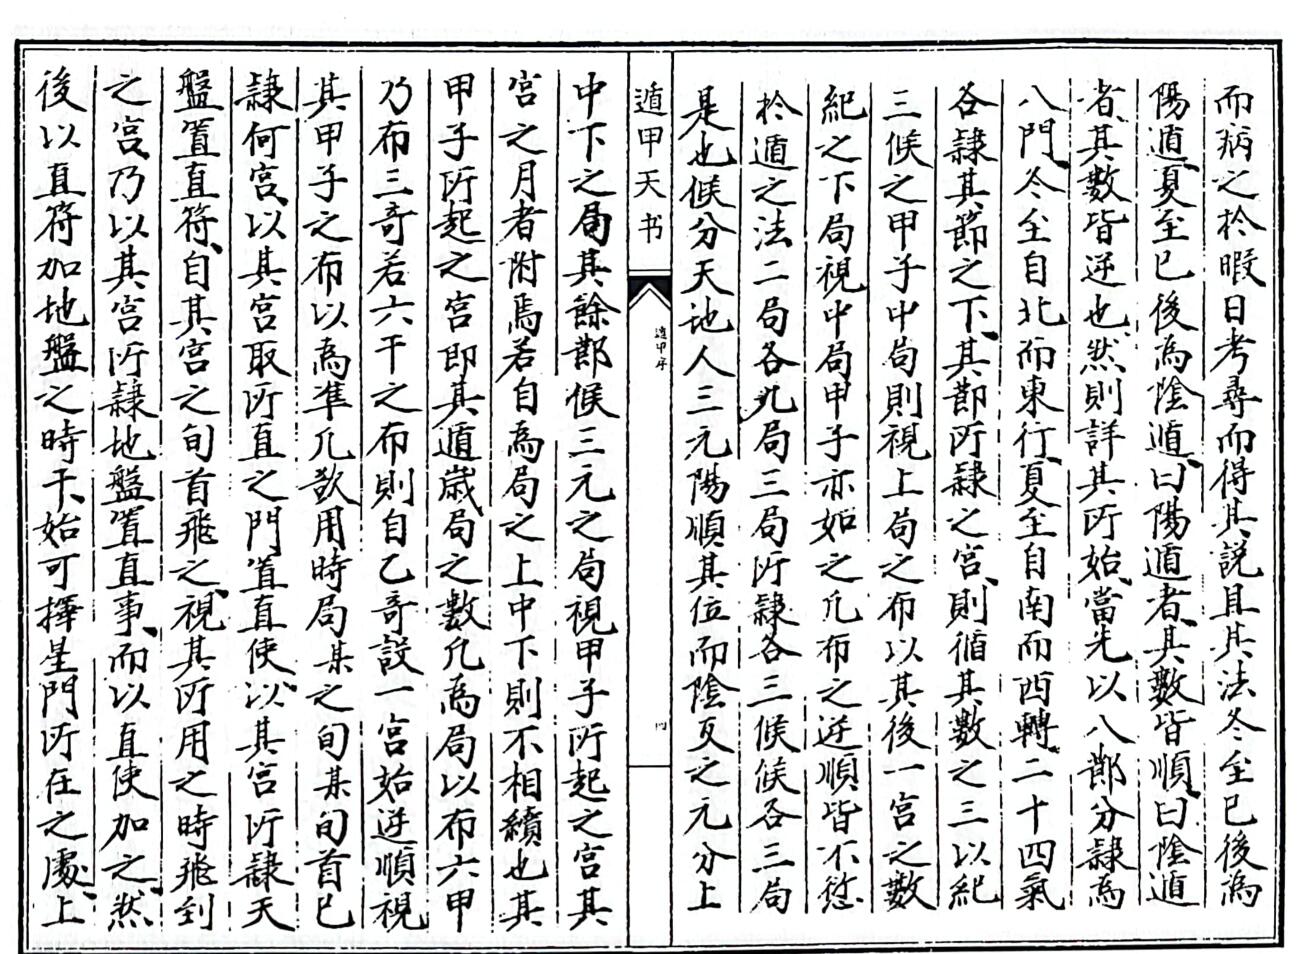 而病之扵暇日考尋而得其説且其法冬至已後為
陽遁夏至已後為陰遁曰陽遁者其數皆順曰陰遁
者其數皆逆也然則詳其所始當先以八節分隸為
八門冬至自北而東行夏至自南而西轉二十四氣
各隸其節之下其節所隸之宮則循其數之三以紀
三候之甲子中局則視上局之布以其後一宮之數
紀之下局視中局甲子亦如之凢布之逆順皆不愆
扵遁之法二局各九局三局所隸各三候候各三局
是也候分天地人三元陽順其位而陰反之元分上
遁甲天书
遁甲序
四
中下之局其餘節候三元之局視甲子所起之宮其
宮之月者附焉若自為局之上中下則不相續也其
甲子所起之宮即其遁歲局之數凢為局以布六甲
乃布三奇若六干之布則自乙奇設一宮始逆順視
其甲子之布以為準凢欲用時局某之旬某旬首已
隸何宮以其宮取所直之門置直使以其宮所隸天
盤置直符自其宮之旬首飛之視其所用之時飛到
之宮乃以其宮所隸地盤置直事而以直使加之然
後以直符加地盤之時干始可擇星門所在之處上